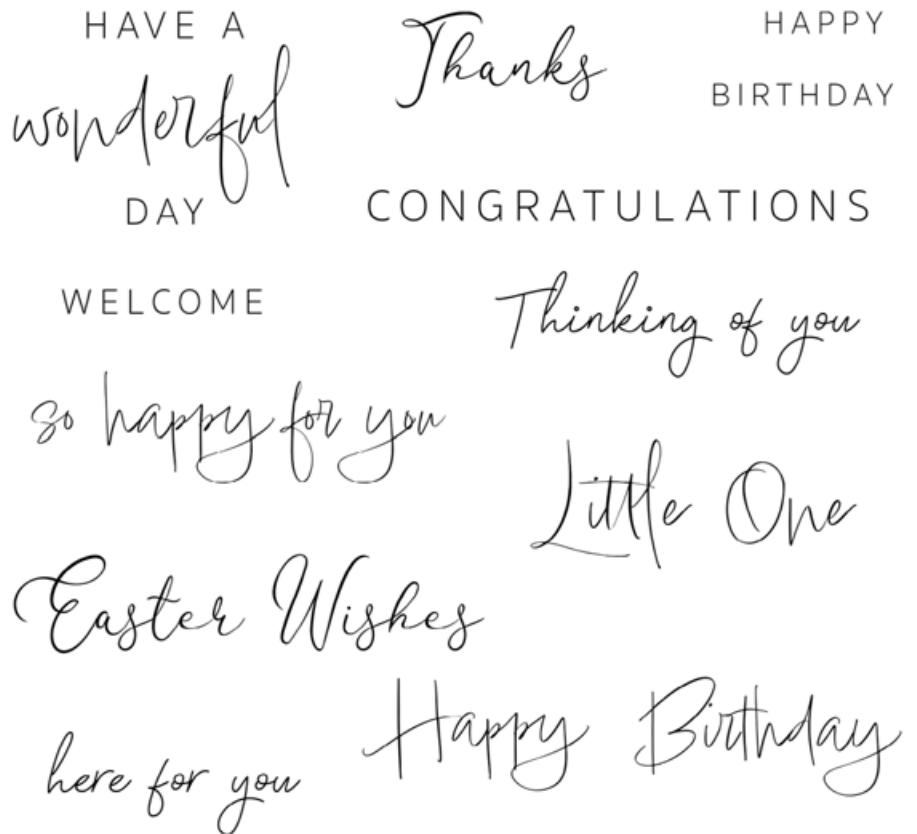 HAVE A
wonderful
DAY
Thanks
HAPPY
BIRTHDAY
CONGRATULATIONS
WELCOME
Thinking of you
so happy for you
Little One
Easter Wishes
Happy Birthday
here for you